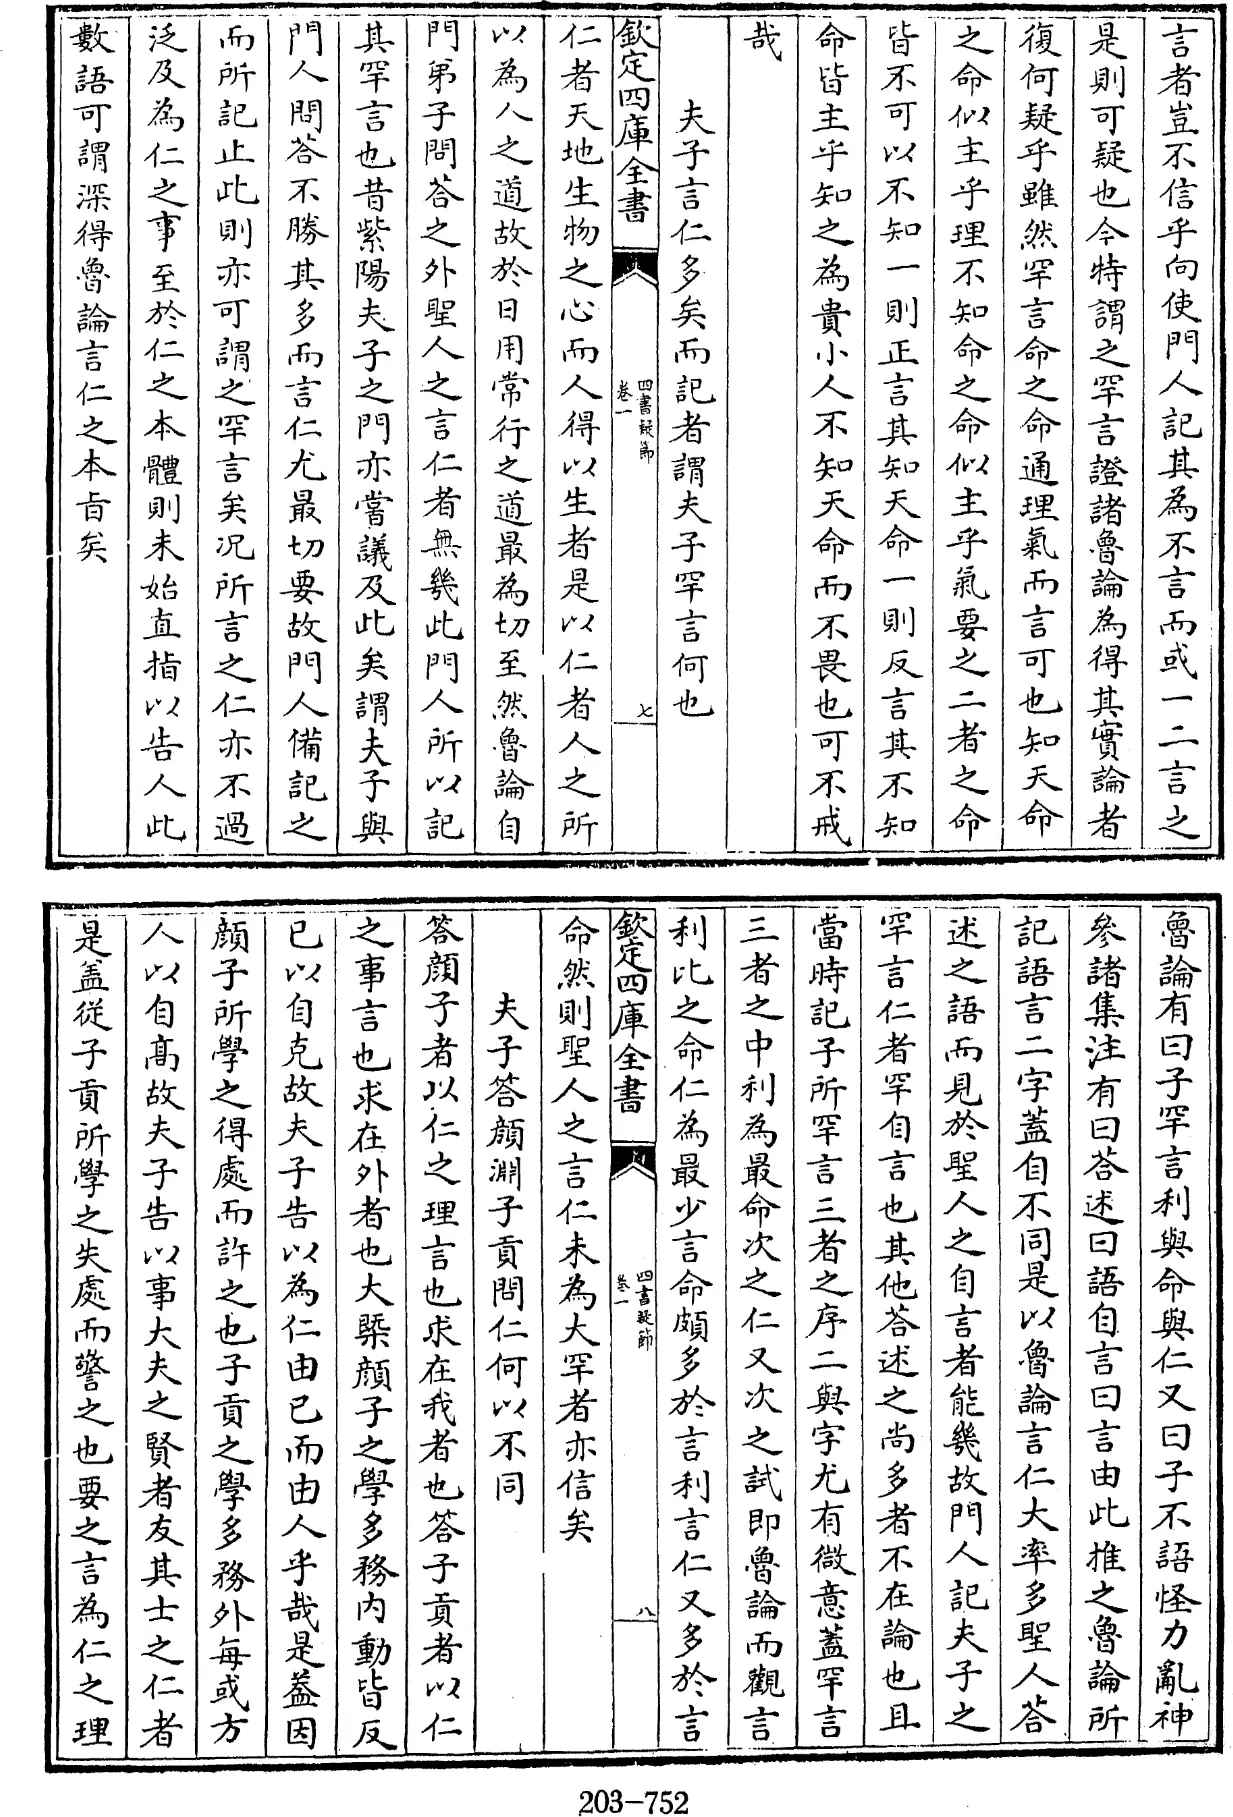 言者豈不信乎向使門人記其為不言而或一二言之
是則可疑也今特謂之罕言證諸魯論為得其實論者
復何疑乎雖然罕言命之命通理氣而言可也知天命
之命似主乎理不知命之命似主乎氣要之二者之命
皆不可以不知一則正言其知天命一則反言其不知
命皆主乎知之為貴小人不知天命而不畏也可不戒
哉
夫子言仁多矣而記者謂夫子罕言何也
欽定四庫全書
四書疑節
卷一
七
仁者天地生物之心而人得以生者是以仁者人之所
以為人之道故於日用常行之道最為切至然魯論自
門弟子問答之外聖人之言仁者無幾此門人所以記
其罕言也昔紫陽夫子之門亦嘗議及此矣謂夫子與
門人問答不勝其多而言仁尤最切要故門人備記之
而所記止此則亦可謂之罕言矣况所言之仁亦不過
泛及為仁之事至於仁之本體則未始直指以告人此
數語可謂深得魯論言仁之本旨矣
魯論有曰子罕言利與命與仁又曰子不語怪力亂神
參諸集注有曰答述曰語自言曰言由此推之魯論所
記語言二字蓋自不同是以魯論言仁大率多聖人答
述之語而見於聖人之自言者能幾故門人記夫子之
罕言仁者罕自言也其他答述之尚多者不在論也且
當時記子所罕言三者之序二與字尤有微意蓋罕言
三者之中利為最命次之仁又次之試即魯論而觀言
利比之命仁為最少言命頗多於言利言仁又多於言
欽定四庫全書
四書疑節
卷一
八
命然則聖人之言仁未為大罕者亦信矣
夫子答顔淵子貢問仁何以不同
答顔子者以仁之理言也求在我者也答子貢者以仁
之事言也求在外者也大槩顔子之學多務内動皆反
已以自克故夫子告以為仁由已而由人乎哉是葢因
顔子所學之得處而許之也子貢之學多務外每或方
人以自高故夫子告以事大夫之賢者友其士之仁者
是葢從子貢所學之失處而警之也要之言為仁之理
203-752